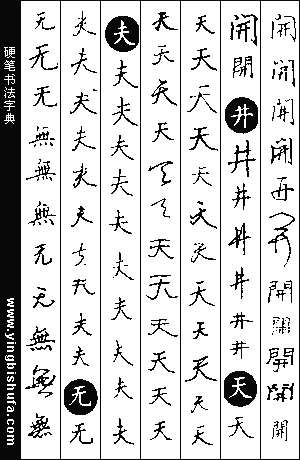 開開開開开开開開開開開
開開井井井井井井井天天
天天天天天天天天天天天天
天天天天天天天天天天天天
夫夫夫夫夫夫夫夫夫夫夫
夫夫夫夫夫夫夫夫夫夫无无
无无无無無無无无無無無
硬笔书法字典
www.yingbishufa.com